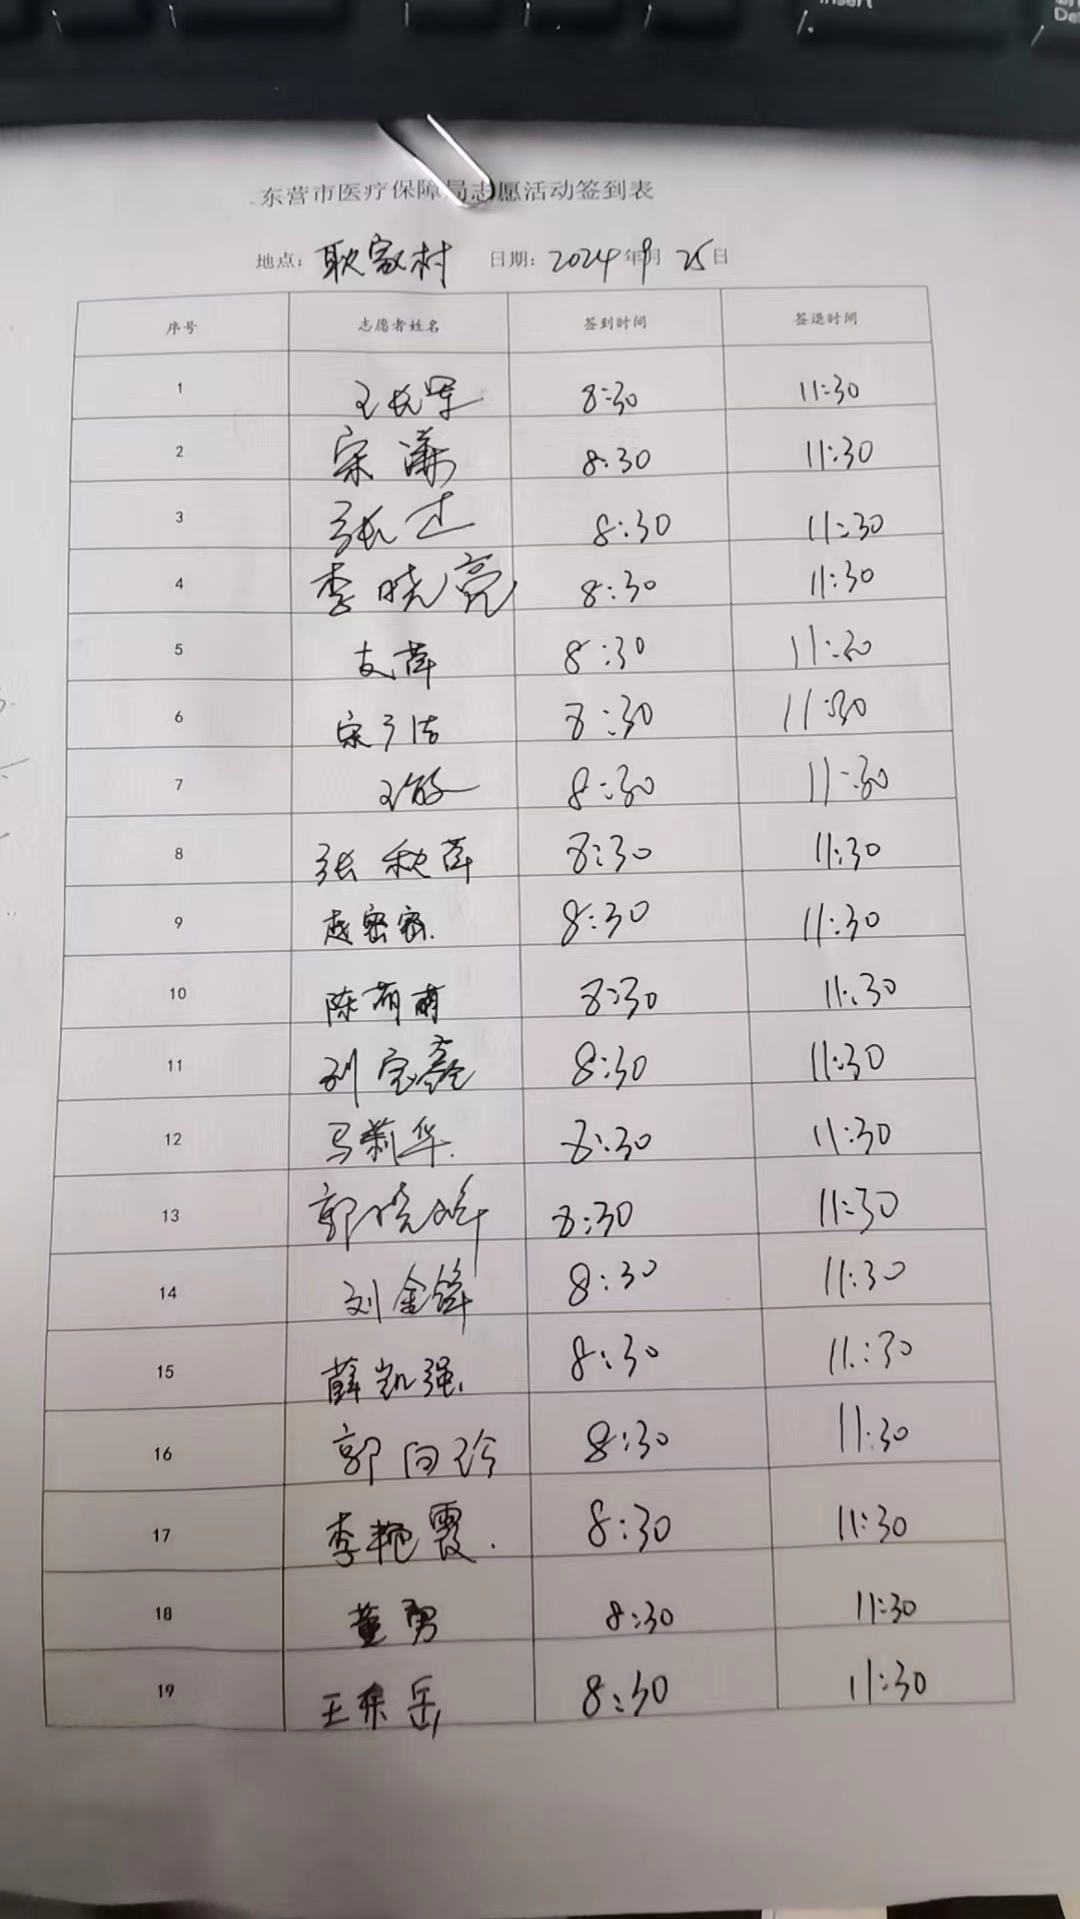 Insert
东营市医疗保障局志愿活动签到表
地点: 耿家村 日期: 2024年9月25日
序号 志愿者姓名 签到时间 签退时间
1 王长军 8:30 11:30
2 宋潇 8:30 11:30
3 张 8:30 11:30
4 李晓亮 8:30 11:30
5 支萍 8:30 11:30
6 宋子洁 8:30 11:30
7 王 8:30 11:30
8 张秋萍 8:30 11:30
9 赵密密 8:30 11:30
10 陈萌萌 8:30 11:30
11 刘宝鑫 8:30 11:30
12 马莉华 8:30 11:30
13 郭晓峰 8:30 11:30
14 刘金锋 8:30 11:30
15 薛凯强 8:30 11:30
16 郭向玲 8:30 11:30
17 李艳霞 8:30 11:30
18 董勇 8:30 11:30
19 王东岳 8:30 11:30